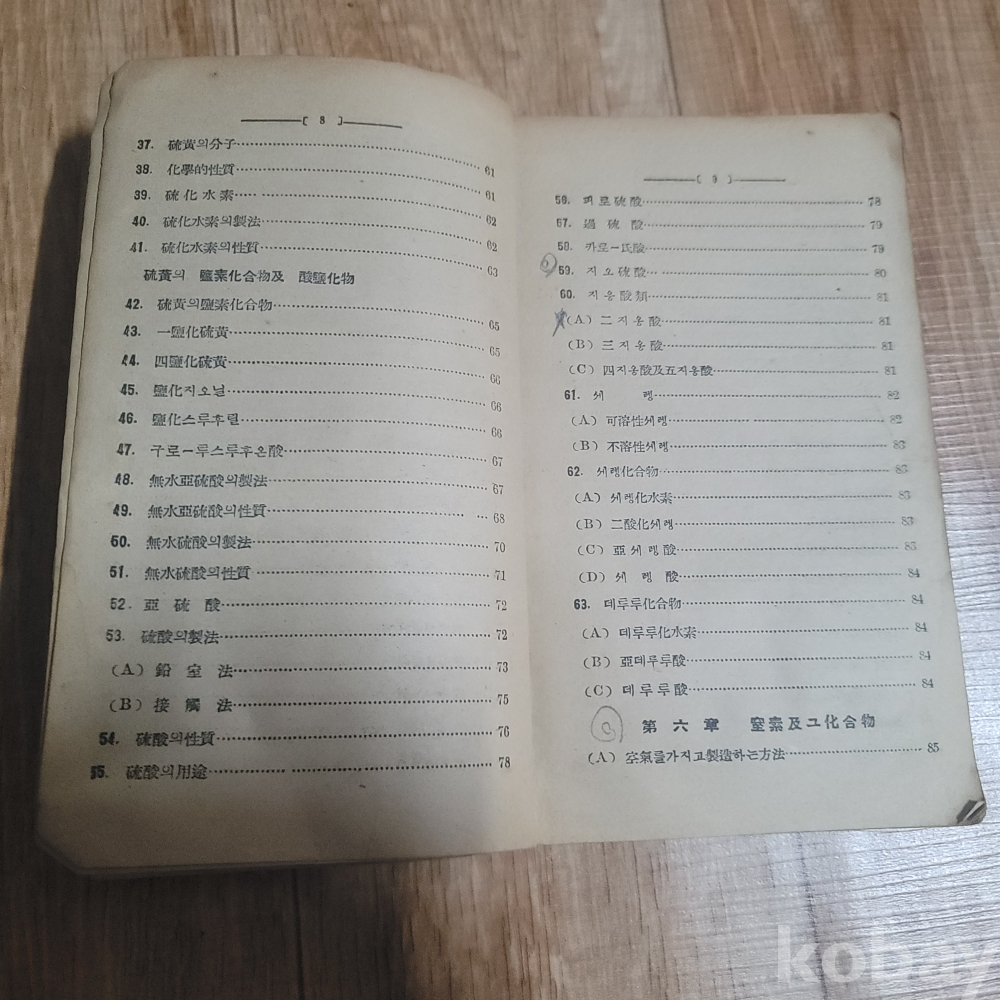 [ 8 ]
37. 硫黃의分子 61
38. 化學的性質 61
39. 硫化水素 62
40. 硫化水素의製法 62
41. 硫化水素의性質 63
硫黃의 鹽素化合物及 酸鹽化物
42. 硫黃의鹽素化合物 65
43. 一鹽化硫黃 65
44. 四鹽化硫黃 66
45. 鹽化지오닐 66
46. 鹽化스루후릴 66
47. 구로ー루스루후온酸 67
48. 無水亞硫酸의製法 67
49. 無水亞硫酸의性質 68
50. 無水硫酸의製法 70
51. 無水硫酸의性質 71
52. 亞硫酸 72
53. 硫酸의製法 72
(A) 鉛室法 73
(B) 接觸法 75
54. 硫酸의性質 76
55. 硫酸의用途 78
[ 9 ]
56. 피로硫酸 78
57. 過硫酸 79
58. 카로ー氏酸 79
59. 지오硫酸 80
60. 지옹酸類 81
(A) 二지옹酸 81
(B) 三지옹酸 81
(C) 四지옹酸及五지옹酸 81
61. 세렝 82
(A) 可溶性세렝 82
(B) 不溶性세렝 83
62. 세렝化合物 83
(A) 세렝化水素 83
(B) 二酸化세렝 83
(C) 亞세렝酸 83
(D) 세렝酸 84
63. 데루루化合物 84
(A) 데루루化水素 84
(B) 亞데루루酸 84
(C) 데루루酸 84
第六章 窒素及그化合物
(A) 空氣를가지고製造하는方法 85
kobay